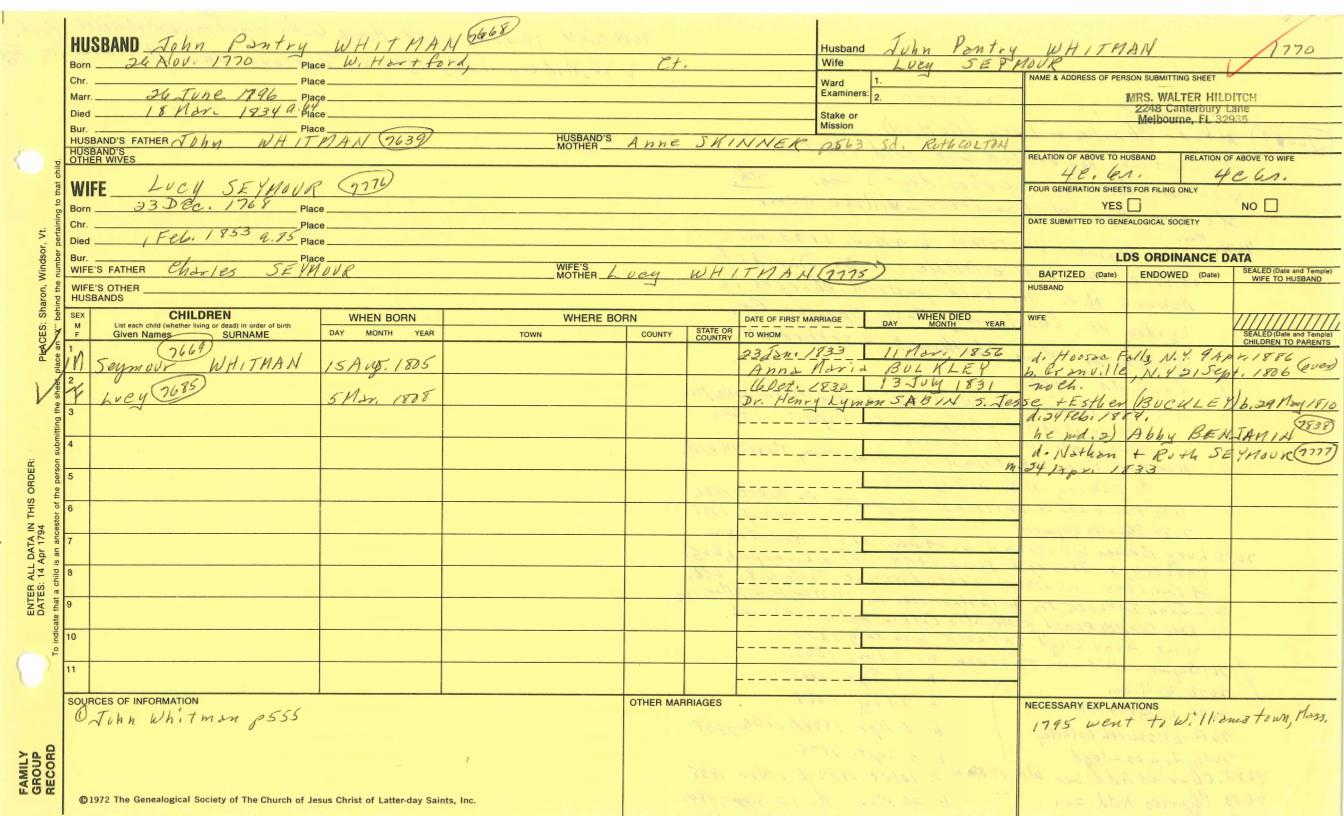 HUSBAND John Pantry WHITMAN 7668
Born 26 Nov. 1770 Place W. Hartford, Ct.
Chr. Place
Marr. 26 June 1796 Place
Died 18 Mar. 1834 a. 64 Place
Bur. Place
HUSBAND'S FATHER John WHITMAN 7639 HUSBAND'S MOTHER Anne SKINNER p563 sd. Ruth COLTON
HUSBAND'S OTHER WIVES
Husband John Pantry WHITMAN 1770
Wife Lucy SEYMOUR
Ward Examiners: 1.
2.
Stake or Mission
NAME & ADDRESS OF PERSON SUBMITTING SHEET
MRS. WALTER HILDITCH
2248 Canterbury Lane
Melbourne, FL 32935
RELATION OF ABOVE TO HUSBAND RELATION OF ABOVE TO WIFE
4c. 6r. 4c 6r.
FOUR GENERATION SHEETS FOR FILING ONLY
YES NO
DATE SUBMITTED TO GENEALOGICAL SOCIETY
WIFE Lucy SEYMOUR 7776
Born 23 Dec. 1768 Place
Chr. Place
Died 1 Feb. 1853 a. 85 Place
Bur. Place
WIFE'S FATHER Charles SEYMOUR WIFE'S MOTHER Lucy WHITMAN 7775
WIFE'S OTHER HUSBANDS
LDS ORDINANCE DATA
BAPTIZED (Date) ENDOWED (Date) SEALED (Date and Temple) WIFE TO HUSBAND
HUSBAND
WIFE
SEALED (Date and Temple) CHILDREN TO PARENTS
SEX M F CHILDREN List each child (whether living or dead) in order of birth Given Names SURNAME
WHEN BORN DAY MONTH YEAR
WHERE BORN TOWN COUNTY STATE OR COUNTRY
DATE OF FIRST MARRIAGE TO WHOM
WHEN DIED DAY MONTH YEAR
1 M Seymour 7669 WHITMAN 15 Aug. 1805 23 Jan. 1833 11 Mar. 1856 d. Hoosac Falls, N.Y. 9 Apr 1886
Anna Maria BULKLEY b. Granville, N.Y 21 Sept. 1806 (over)
2 F Lucy 7685 5 Mar. 1808 16 Oct. 1830 13 July 1831 no ch.
Dr. Henry Lyman SABIN s. Jesse + Esther (BUCKLEY) b. 29 May 1810
3 d. 24 Feb. 1884.
he md. 2) Abby BENJAMIN 7838
4 d. Nathan + Ruth SEYMOUR 7777
m. 24 Apr. 1833
5
6
7
8
9
10
11
SOURCES OF INFORMATION
① John Whitman p555
OTHER MARRIAGES
NECESSARY EXPLANATIONS
1795 went to Williamstown, Mass.
©1972 The Genealogical Society of The Church of Jesus Christ of Latter-day Saints, Inc.
FAMILY GROUP RECORD
ENTER ALL DATA IN THIS ORDER:
DATES: 14 Apr 1794
PLACES: Sharon, Windsor, Vt.
To indicate that a child is an ancestor of the person submitting the sheet, place an behind the number pertaining to that child.